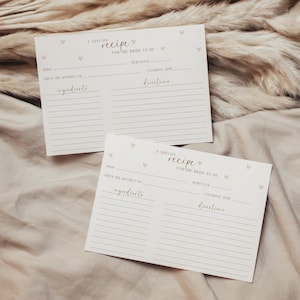 A SPECIAL
recipe
FOR THE BRIDE TO BE
SERVINGS
FROM THE KITCHEN OF
COOKING TIME
ingredients
directions
A SPECIAL
recipe
FOR THE BRIDE TO BE
SERVINGS
FROM THE KITCHEN OF
COOKING TIME
ingredients
directions